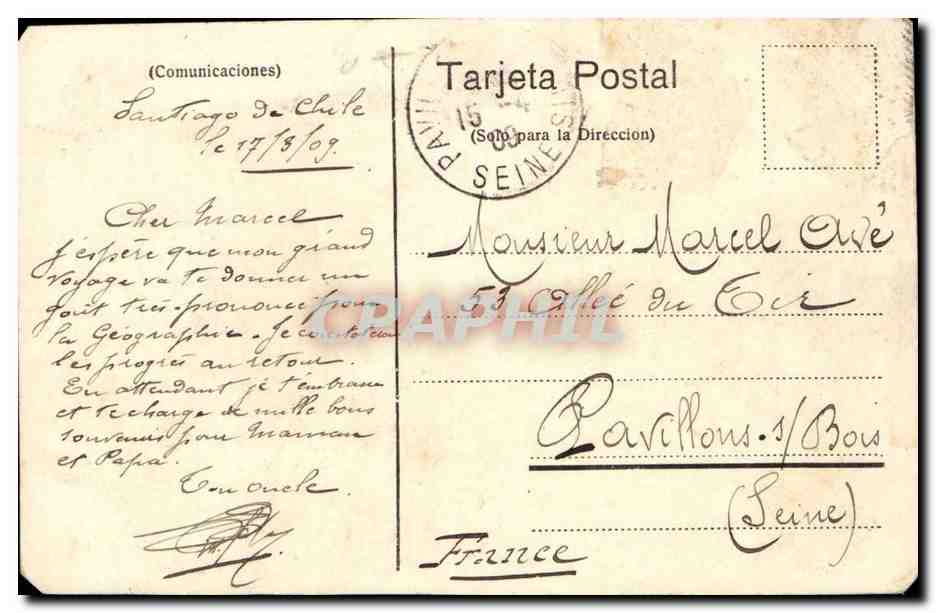 (Comunicaciones)
Santiago de Chile
le 17/3/09.
Cher Marcel
J'espère que mon grand
voyage va te donner un
goût très prononcé pour
la Géographie. Je constaterai
les progrès au retour.
En attendant je t'embrasse
et te charge de mille bons
souvenirs pour Maman
et Papa.
Ton oncle.
Tarjeta Postal
(Solo para la Direccion)
15 -4
09
SEINE
Monsieur Marcel Avé
53 Allée du Tir
Pavillons s/ Bois
(Seine)
France
CPAPHIL